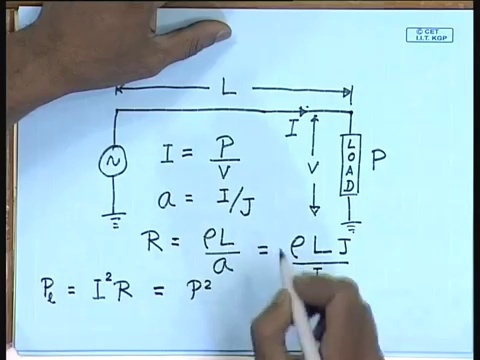 © CET
I.I.T. KGP
L
I
LOAD
P
V
I = P/V
a = I/J
R = ρL/a = ρLJ/I
Pℓ = I²R = P²